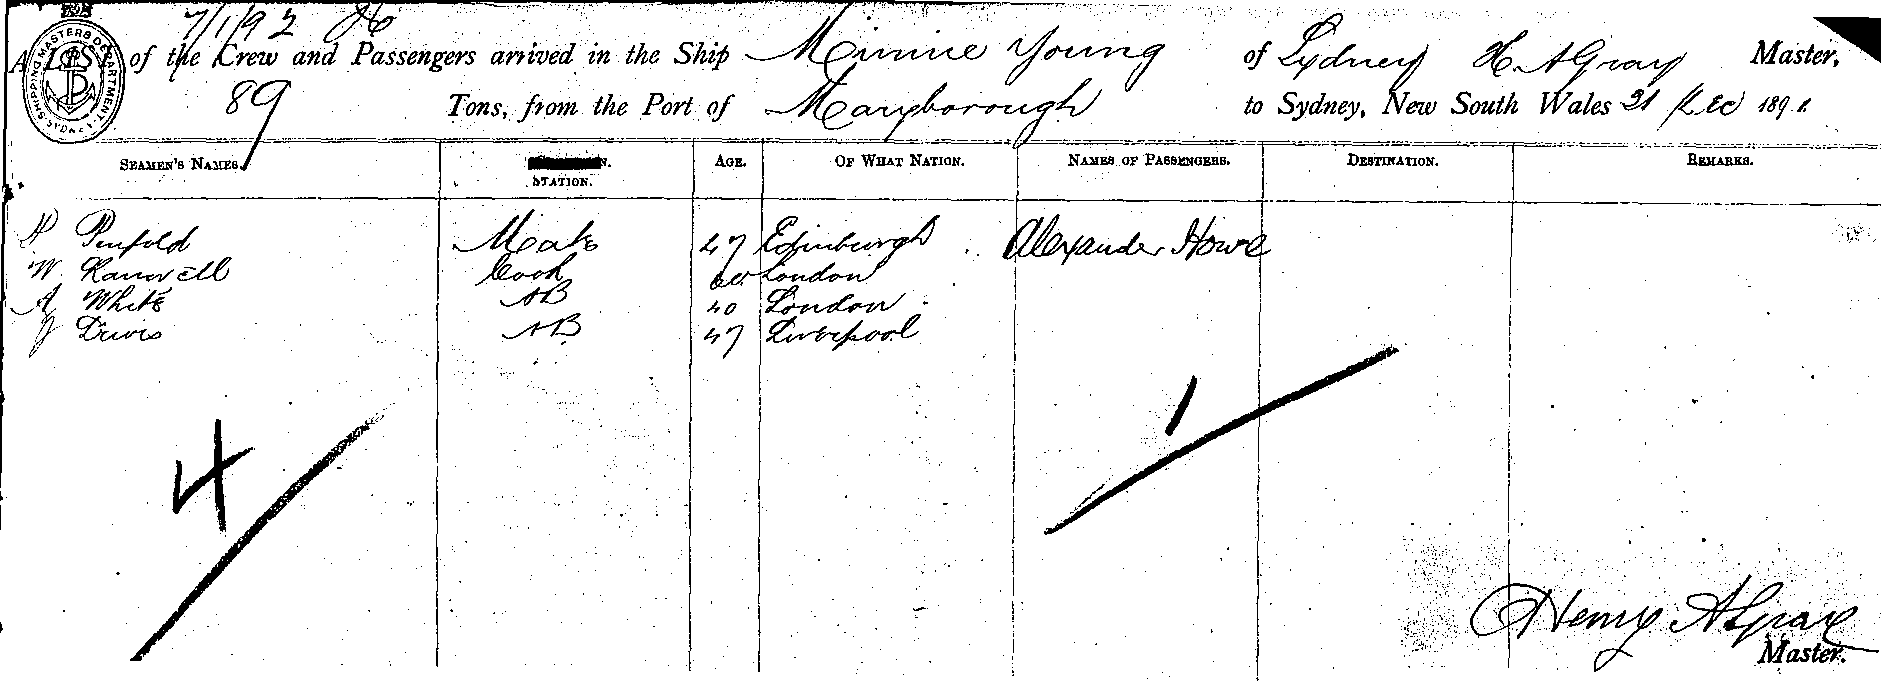 7/1/92
A LIST of the Crew and Passengers arrived in the Ship Minnie Young of Sydney H. A Gray Master,
89 Tons, from the Port of Maryborough to Sydney, New South Wales 31 Dec 1891.
SHIPPING MASTERS DEPARTMENT SYDNEY
SEAMEN'S NAMES. STATION. AGE. OF WHAT NATION. NAMES OF PASSENGERS. DESTINATION. REMARKS.
Penfold Mate 47 Edinburgh Alexander Howe
W. Cook London
A White AB 40 London
J AB 47 Liverpool
4 1
Henry A Gray
Master.